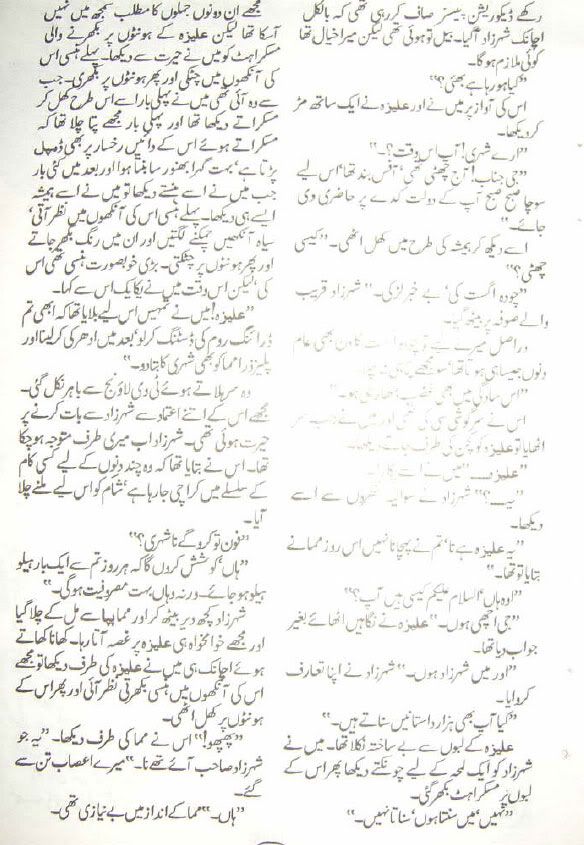 رکھے ڈیکوریشن پیسز صاف کر رہی تھی کہ بالکل
اچانک شہزاد آ گیا۔ بیل تو ہوئی تھی لیکن میرا خیال تھا
کوئی ملازم ہو گا۔
”کیا ہو رہا ہے بھئی؟“
اس کی آواز پر میں نے اور علیزہ نے ایک ساتھ مڑ
کر دیکھا۔
”ارے شہری! آپ اس وقت؟“
”جی جناب! آج چھٹی تھی‘ آفس بند تھا‘ اس لیے
سوچا صبح صبح آپ کے دولت کدے پر حاضری دی
جائے۔“
اسے دیکھ کر ہمیشہ کی طرح میں کھل اٹھی۔ ”کیسی
چھٹی؟“
”چودہ اگست کی‘ بے خبر لڑکی۔“ شہزاد قریب
والے صوفہ پر بیٹھ گیا۔
دراصل میرے لیے تو چودہ اگست کا دن بھی عام
دنوں جیسا ہی ہوتا تھا‘ سو مجھے پتا ہی نہ چلا۔
”اس سادگی میں بھی غضب ڈھا رہی ہو۔“
اس نے سرگوشی سی کی تھی اور میں نے
اٹھایا تو علیزہ کو کچن کی طرف جاتے دیکھا۔
”علیزہ۔“ میں نے اسے پکارا۔
”یہ۔؟“ شہزاد نے سوالیہ نظروں سے اسے
دیکھا۔
”یہ علیزہ ہے نا‘ تم نے پہچانا نہیں اس روز ممانے
بتایا تو تھا۔“
”اوہ ہاں‘ السلام علیکم کیسی ہیں آپ؟“
”جی اچھی ہوں۔“ علیزہ نے نگاہیں اٹھائے بغیر
جواب دیا تھا۔
”اور میں شہزاد ہوں۔“ شہزاد نے اپنا تعارف
کروایا۔
”کیا آپ بھی ہزار داستانیں سناتے ہیں۔“
علیزہ کے لبوں سے بے ساختہ نکلا تھا۔ میں نے
شہزاد کو ایک لمحہ کے لیے چونکتے دیکھا پھر اس کے
لبوں پر مسکراہٹ بکھر گئی۔
”نہیں‘ میں سنتا ہوں‘ سناتا نہیں۔“
مجھے ان دونوں جملوں کا مطلب سمجھ میں نہیں
آسکا تھا لیکن علیزہ کے ہونٹوں پر بکھرنے والی
مسکراہٹ کو میں نے حیرت سے دیکھا۔ پہلے ہنسی اس
کی آنکھوں میں چمکی اور پھر ہونٹوں پر بکھری۔ جب
سے وہ آئی تھی میں نے پہلی بار اسے اس طرح کھل کر
مسکراتے دیکھا تھا اور پہلی بار مجھے پتا چلا تھا کہ
مسکراتے ہوئے اس کے دائیں رخسار پر بھی ڈمپل
پڑتا ہے‘ بہت گہرا بھنور سا بنتا ہوا اور بعد میں کئی بار
جب میں نے اسے ہنستے دیکھا تو میں نے اسے ہمیشہ
ایسے ہی دیکھا۔ پہلے ہنسی اس کی آنکھوں میں نظر آتی‘
سیاہ آنکھیں چمکنے لگتیں اور ان میں رنگ بکھر جاتے
اور پھر ہونٹوں پر چمکتی۔ بڑی خوبصورت ہنسی تھی اس
کی‘ لیکن اس وقت میں نے یکایک اس سے کہا۔
”علیزہ! میں نے تمہیں اس لیے بلایا تھا کہ ابھی تم
ڈرائنگ روم کی ڈسٹنگ کر لو‘ بعد میں ادھر کی کر لینا اور
پلیز ذرا مما کو بھی شہری کا بتا دو۔“
وہ سر ہلاتے ہوئے ٹی وی لاؤنج سے باہر نکل گئی۔
مجھے اس کے اتنے اعتماد سے شہزاد سے بات کرنے پر
حیرت ہوئی تھی۔ شہزاد اب میری طرف متوجہ ہو چکا
تھا۔ اس نے بتایا تھا کہ وہ چند دنوں کے لیے کسی کام
کے سلسلے میں کراچی جا رہا ہے‘ شام کو اس لیے ملنے چلا
آیا۔
”فون تو کرو گے نا شہری؟“
”ہاں‘ کوشش کروں گا کہ ہر روز تم سے ایک بار ہیلو
ہیلو ہو جائے۔ ورنہ وہاں بہت مصروفیت ہو گی۔“
شہزاد کچھ دیر بیٹھ کر اور مما پپا سے مل کے چلا گیا
اور مجھے خوامخواہ ہی علیزہ پر غصہ آتا رہا۔ کھانا کھاتے
ہوئے اچانک ہی میں نے علیزہ کی طرف دیکھا تو مجھے
اس کی آنکھوں میں ہنسی بکھرتی نظر آئی اور پھر اس کے
ہونٹوں پر کھل اٹھی۔
”پھپھو!“ اس نے مما کی طرف دیکھا۔ ”یہ جو
شہزاد صاحب آئے تھے نا۔“ میرے اعصاب تن سے
گئے۔
”ہاں۔“ مما کے انداز میں بے نیازی تھی۔